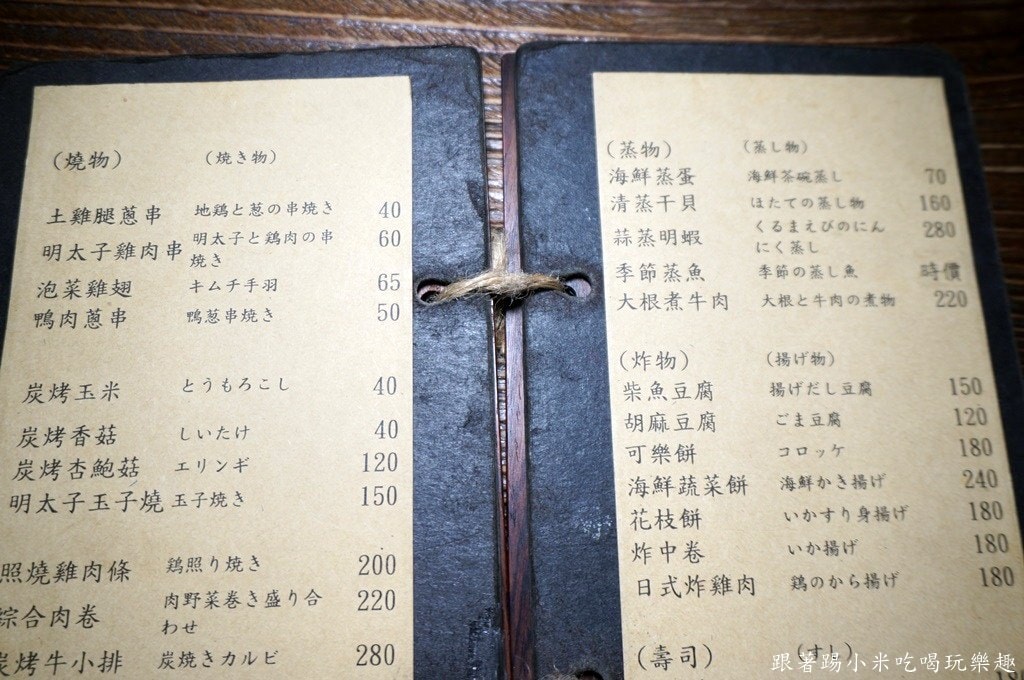 (燒物) (焼き物)
土雞腿蔥串 地鶏と葱の串焼き 40
明太子雞肉串 明太子と鶏肉の串焼き 60
泡菜雞翅 キムチ手羽 65
鴨肉蔥串 鴨葱串焼き 50
炭烤玉米 とうもろこし 40
炭烤香菇 しいたけ 40
炭烤杏鮑菇 エリンギ 120
明太子玉子燒 玉子焼き 150
照燒雞肉條 鶏照り焼き 200
綜合肉卷 肉野菜巻き盛り合わせ 220
炭烤牛小排 炭焼きカルビ 280
(蒸物) (蒸し物)
海鮮蒸蛋 海鮮茶碗蒸し 70
清蒸干貝 ほたての蒸し物 160
蒜蒸明蝦 くるまえびのにんにく蒸し 280
季節蒸魚 季節の蒸し魚 時價
大根煮牛肉 大根と牛肉の煮物 220
(炸物) (揚げ物)
柴魚豆腐 揚げだし豆腐 150
胡麻豆腐 ごま豆腐 120
可樂餅 コロッケ 180
海鮮蔬菜餅 海鮮かき揚げ 240
花枝餅 いかすり身揚げ 180
炸中卷 いか揚げ 180
日式炸雞肉 鶏のから揚げ 180
(壽司) (すし)
跟著踢小米吃喝玩樂趣